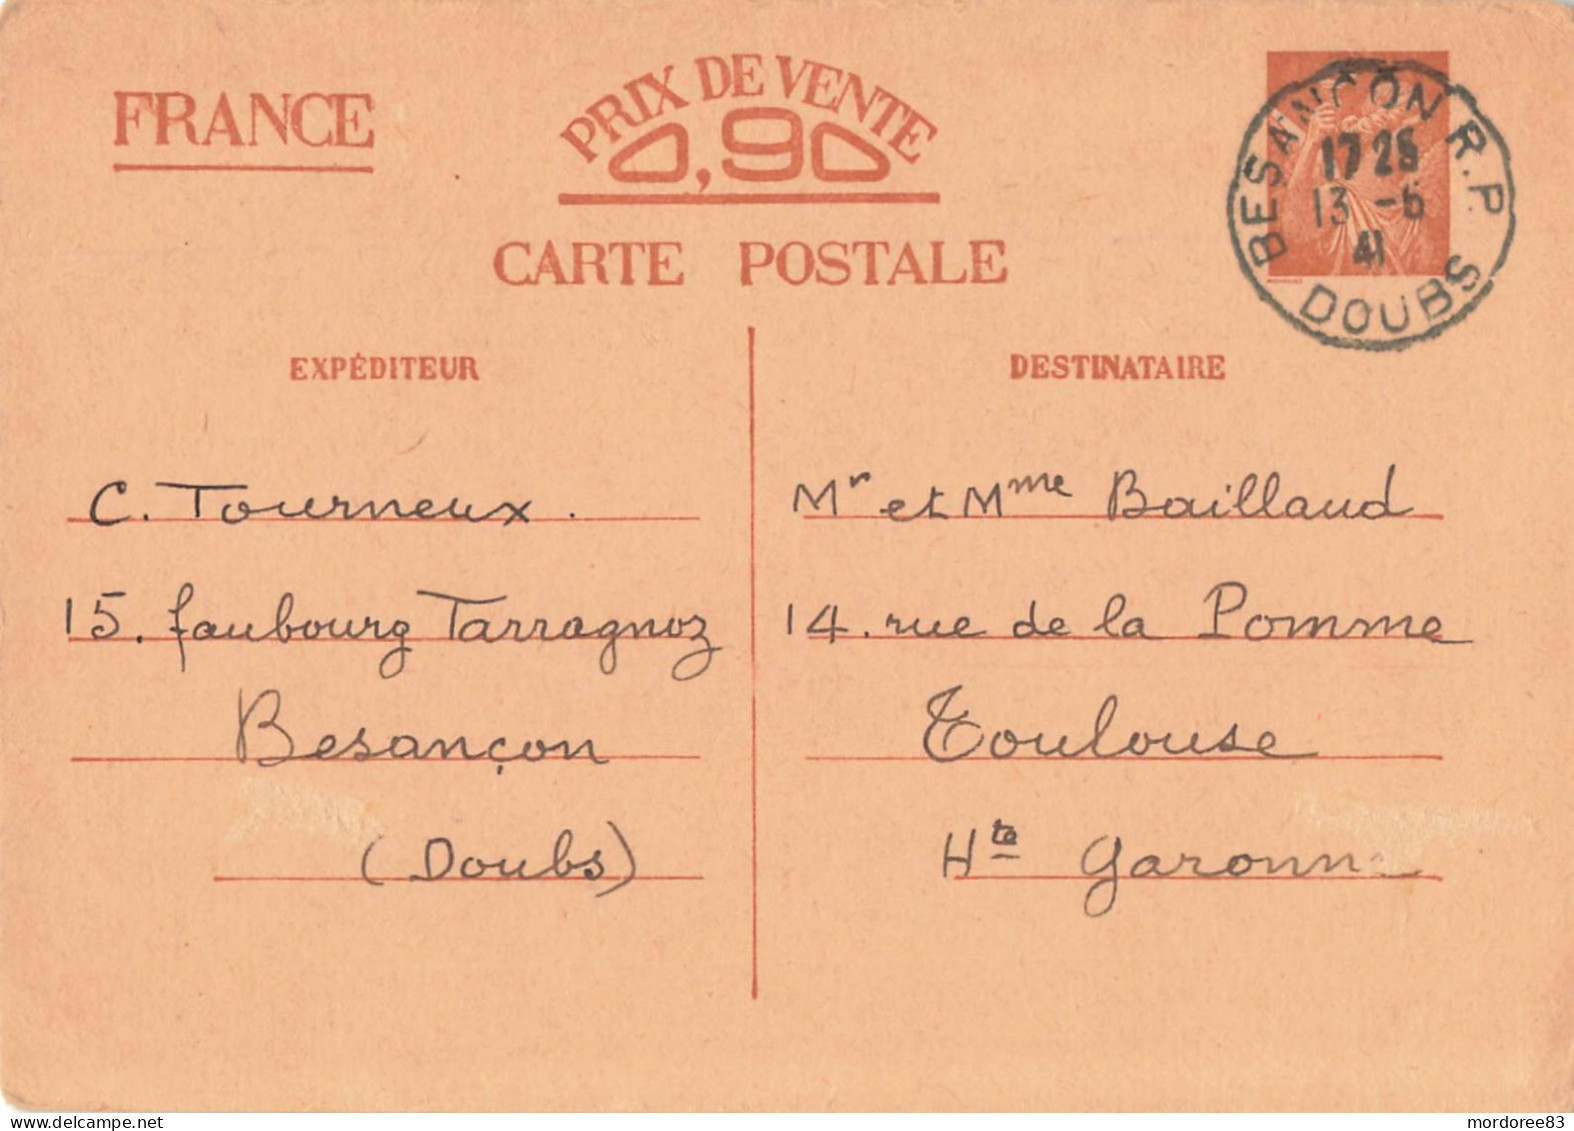 FRANCE
PRIX DE VENTE
0,90
CARTE POSTALE
BESANÇON R.P.
17 25
13 -6
41
DOUBS
EXPÉDITEUR
C. Tourneux.
15. faubourg Tarragnoz
Besançon
(Doubs)
DESTINATAIRE
Mr et Mme Baillaud
14. rue de la Pomme
Toulouse
Hte Garonne
mordoree83